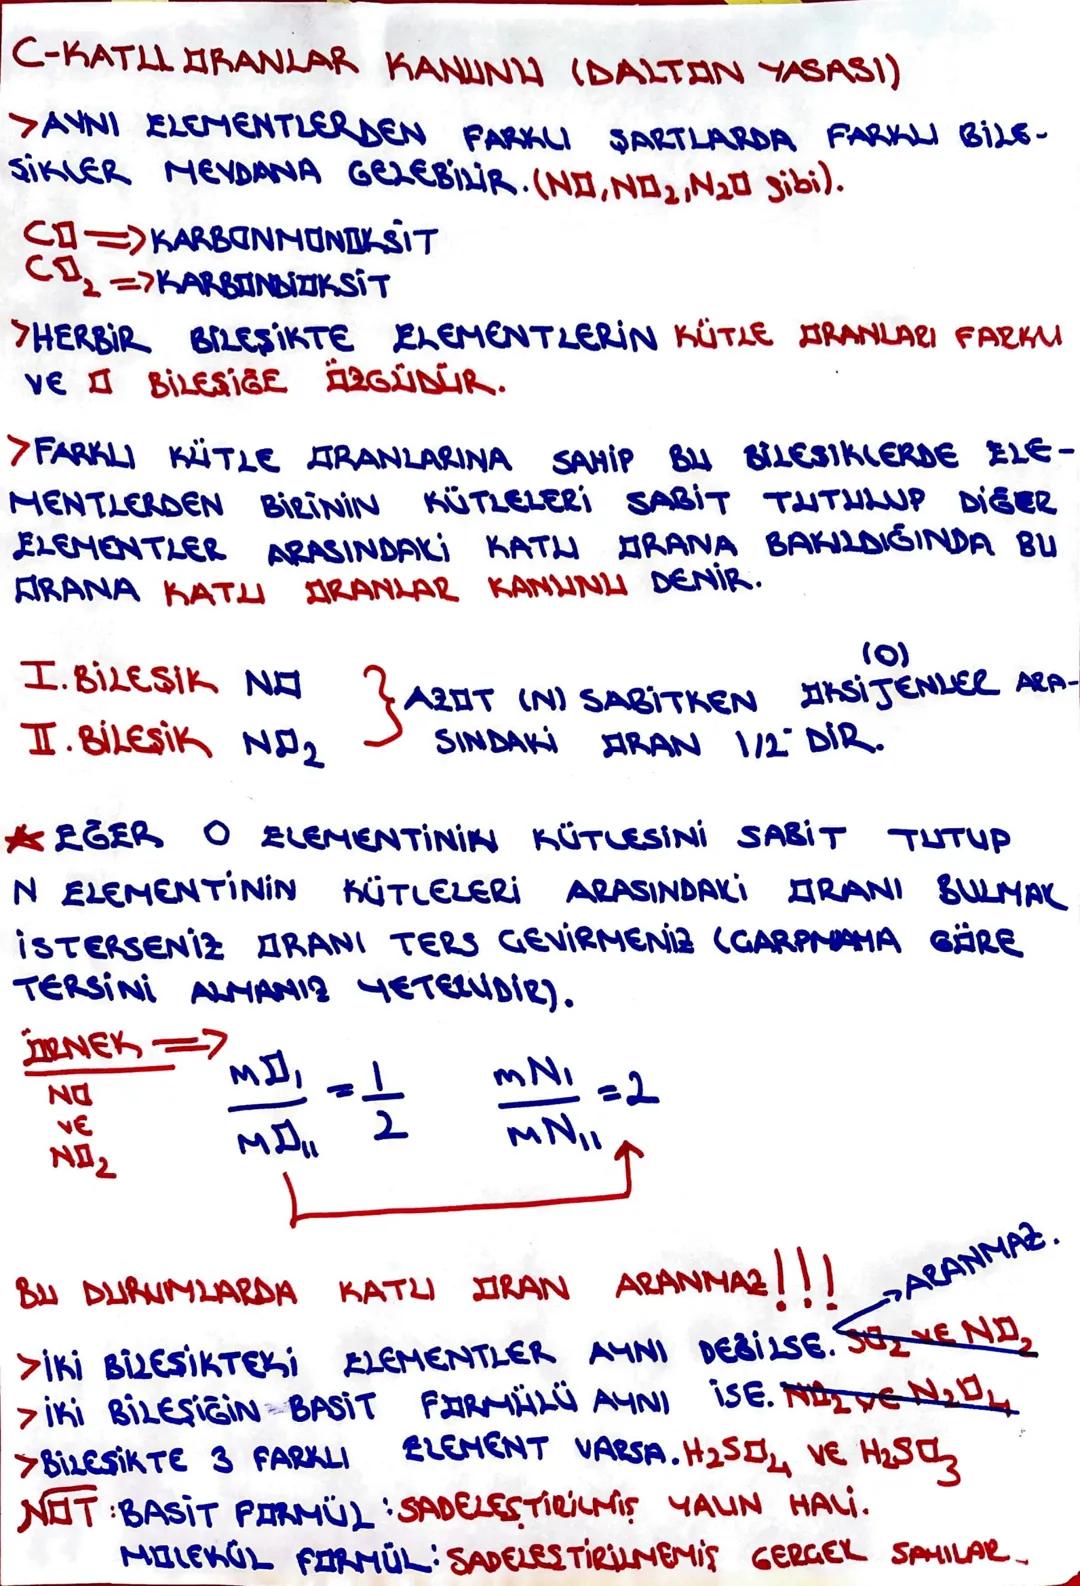 C-KATLI ORANLAR KANUNU (DALTON YASASI)
>AYNI ELEMENTLERDEN FARKLI ŞARTLARDA FARKLI BİLE-
ŞİKLER MEYDANA GELEBİLİR.(NO,NO₂,N₂O gibi).
CO => KARBONMONOKSİT
CO₂ => KARBONDİOKSİT
>HERBİR BİLEŞİKTE ELEMENTLERİN KÜTLE ORANLARI FARKLI
VE O BİLEŞİĞE ÖZGÜDÜR.
>FARKLI KÜTLE ORANLARINA SAHİP BU BİLESIKLERDE ELE-
MENTLERDEN BİRİNİN KÜTLELERİ SABİT TUTULUP DİĞER
ELEMENTLER ARASINDAKİ KATLI ORANA BAKILDIĞINDA BU
ORANA KATLI ORANLAR KANUNU DENİR.
I.BİLESİK NO
II.BİLEŞİK NO₂
} AZOT (N) SABİTKEN OKSİJENLER (O) ARA-
SINDAKİ ORAN 1/2' DİR.
★ EĞER O ELEMENTİNİN KÜTLESİNİ SABİT TUTUP
N ELEMENTİNİN KÜTLELERİ ARASINDAKİ ORANI BULMAK
İSTERSENİZ ORANI TERS ÇEVİRMENİZ (ÇARPMAYA GÖRE
TERSİNİ ALMANIZ YETERLİDİR).
ÖRNEK =>
NO
VE
NO₂
mO₁ / mO₁₁ = 1/2 mN₁ / mN₁₁ = 2
BU DURUMLARDA KATLI ORAN ARANMAZ!!!
→ARANMAZ.
>İKİ BİLESİKTEKİ ELEMENTLER AYNI DEĞİLSE. SO₂ VE NO₂
>İKİ BİLEŞİĞİN BASİT FORMÜLÜ AYNI İSE. NO₂ VE N₂O₄
>BİLESİKTE 3 FARKLI ELEMENT VARSA. H₂SO₄ VE H₂SO₃
NOT:BASİT FORMÜL:SADELEŞTİRİLMİŞ YALIN HALİ.
MOLEKÜL FORMÜL: SADELEŞTİRİLMEMİŞ GERÇEK SAYILAR.